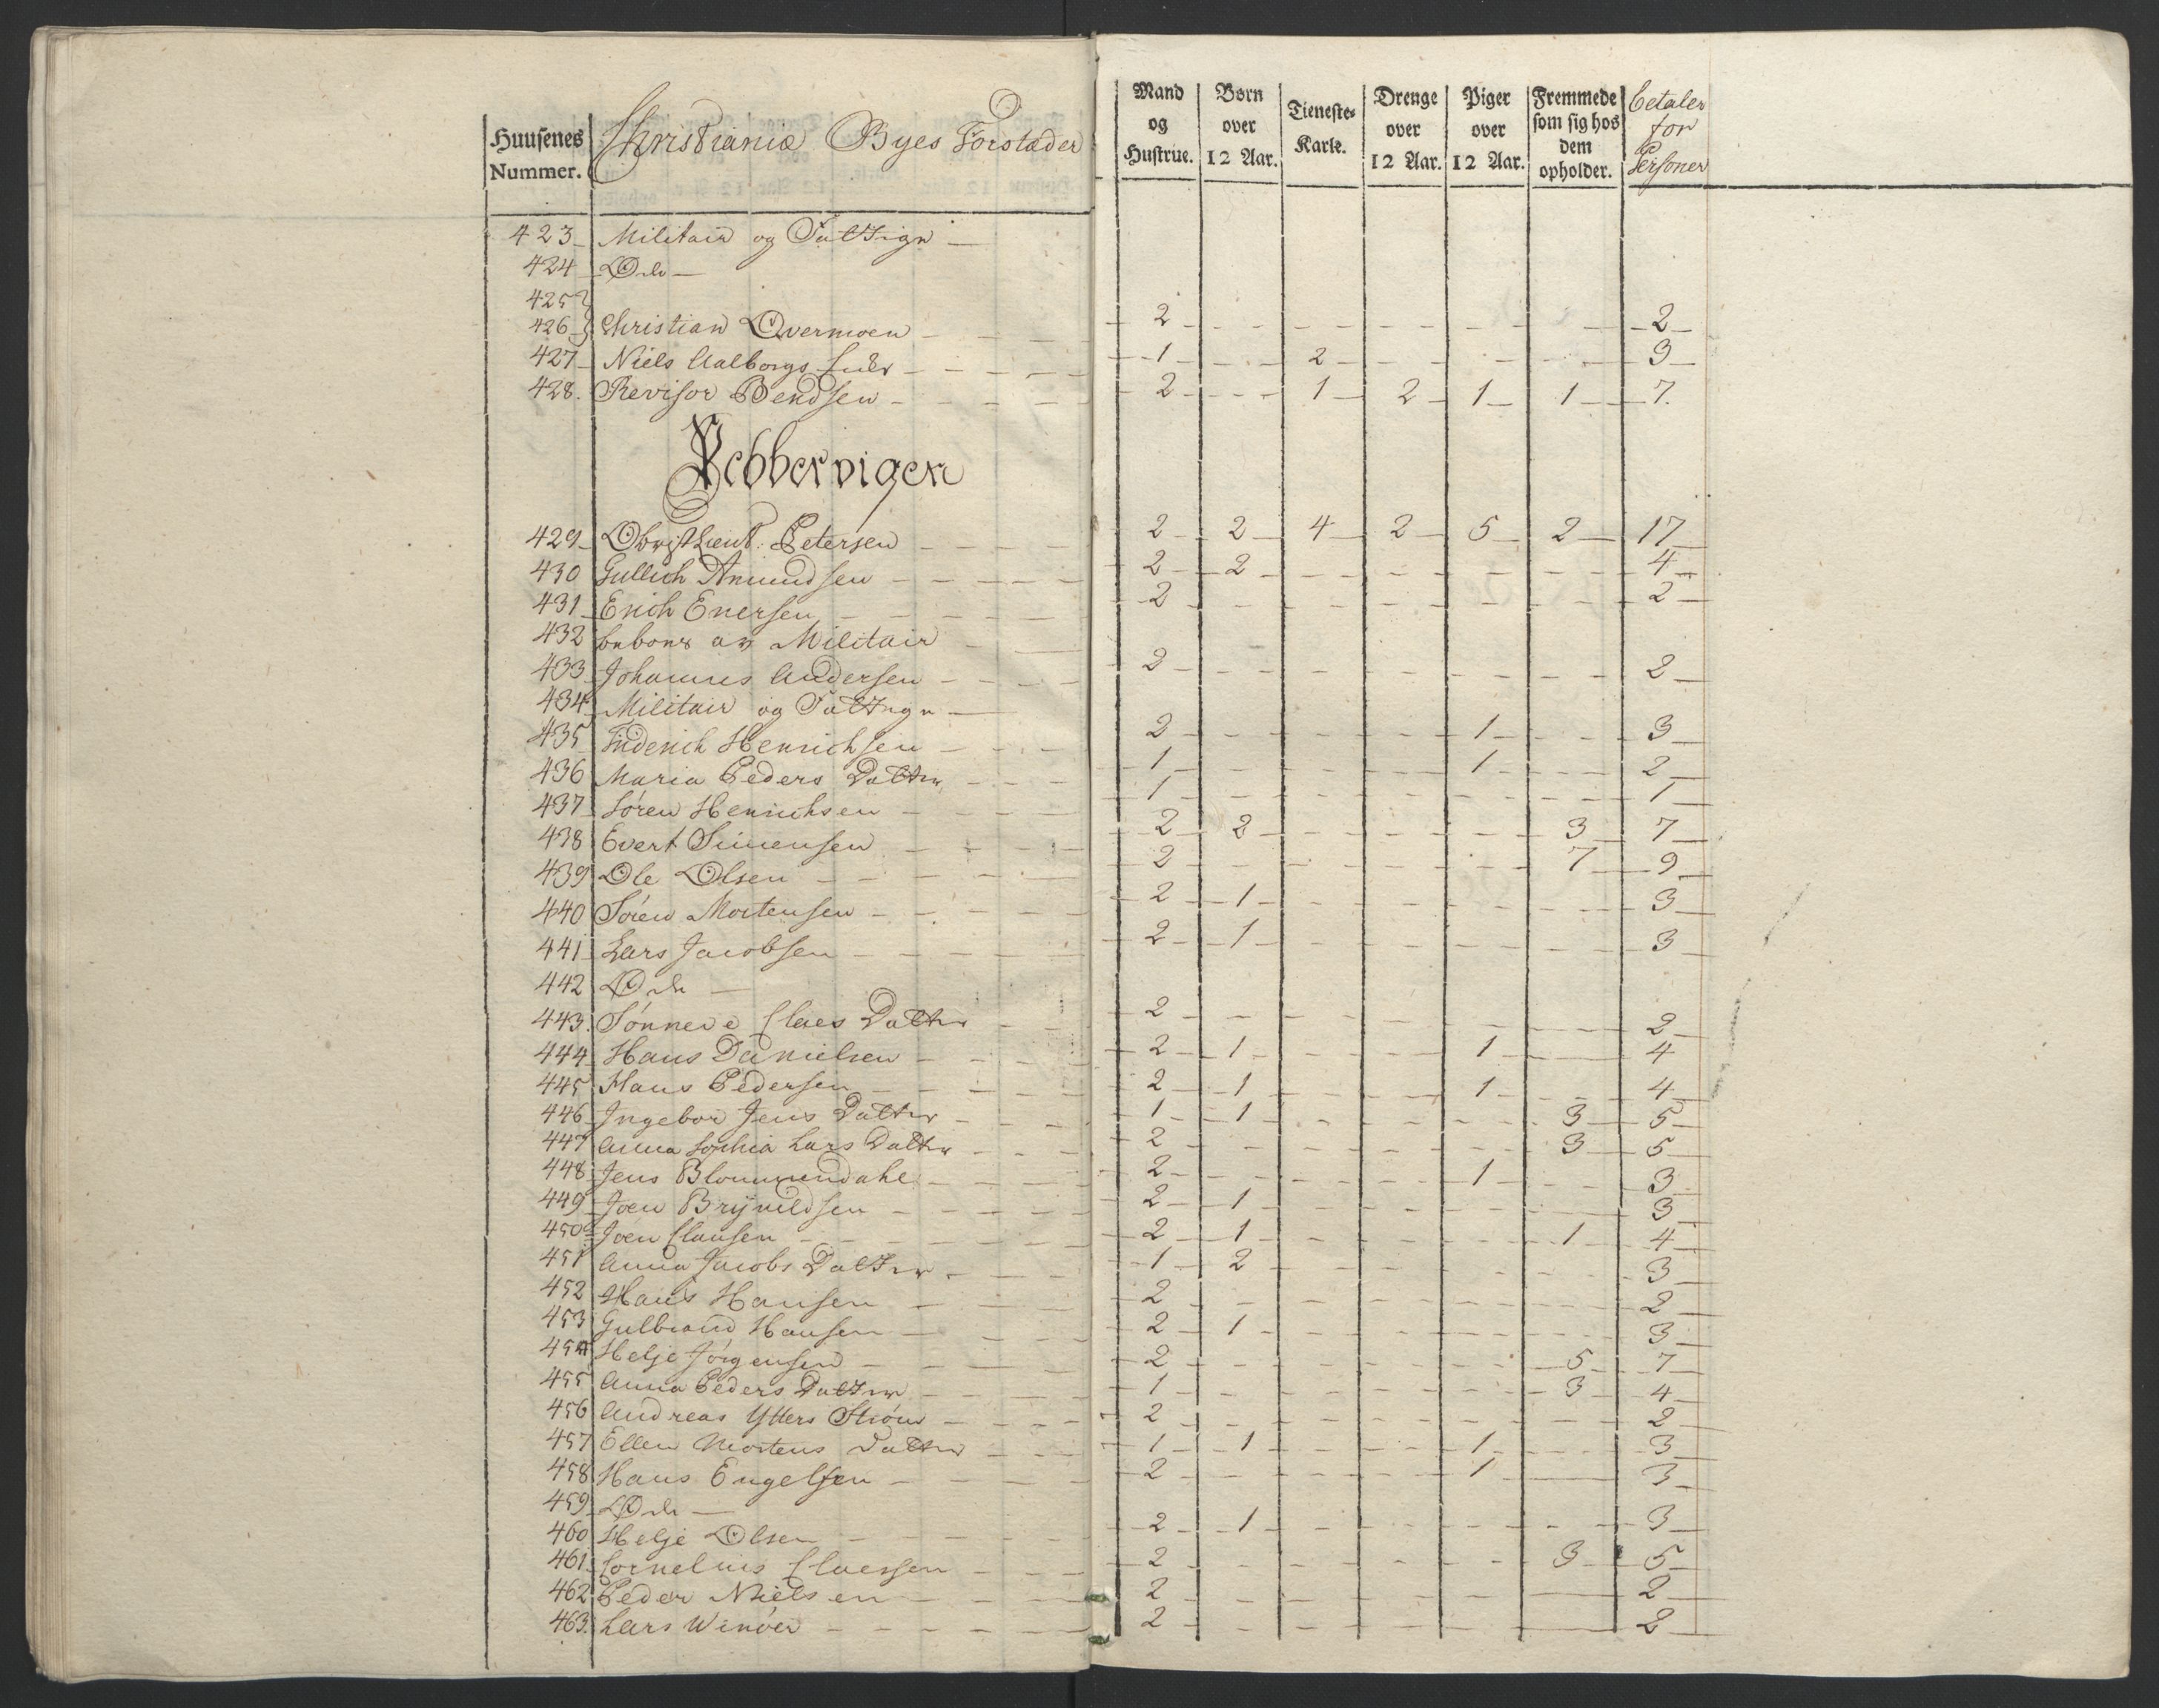 Huusenes Nummer. Christianiæ Byes Forstæder Mand og Hustrue. Børn over 12 Aar. Tieneste-Karle. Drenge over 12 Aar. Piger over 12 Aar. Fremmede som sig hos dem opholder. betaler for Personer
423 Militair og Fattige
424 Øde
425
426 Christian Overmoen 2 2
427 Niels Aalborgs 1 2 3
428. Revisor Bendsen 2 1 2 1 1 7.
Pebbervigen
429 Obristlieut: Petersen 2 2 4 2 5 2 17
430 Gullich Amundsen 2 2 4
431 Erich Enersen 2 2
432 beboes av Militair
433 Johannes Andersen 2 2
434 Militair og Fattige
435 Friderich Henrichsen 2 1 3
436 Maria Peders Datter 1 1 2
437 Søren Henrichsen 1 1
438 Evert Simensen 2 2 3 7
439 Ole Olsen 2 7 9
440 Søren Mortensen 2 1 3
441 Lars Jacobsen 2 1 3
442 Øde
443. Sønneve Claes Datter 2 2
444 Hans Danielsen 2 1 1 4
445 Hans Pedersen 2 1 1 4
446 Ingebor Jens Datter 1 1 3 5
447 Anna Sophia Lars Datter 2 3 5
448 Jens Blommendahl 2 1 3
449 Joen Brÿnildsen 2 1 3
450 Joen Clausen 2 1 1 4
451 Anna Jacobs Datter 1 2 3
452 Hans Hansen 2 2
453 Gulbrand Hansen 2 1 3
454 Helje Jørgensen 2 5 7
455 Anna Peders Datter 1 3 4
456 Andreas Ytters Strøm 2 2
457 Ellen Mortens Datter 1 1 1 3
458 Hans Engelsen 2 1 3
459 Øde
460 Helje Olsen 2 1 3
461 Cornelius Claessen 2 3 5
462 Peder Nielsen 2 2
463. Lars Winøer 2 2